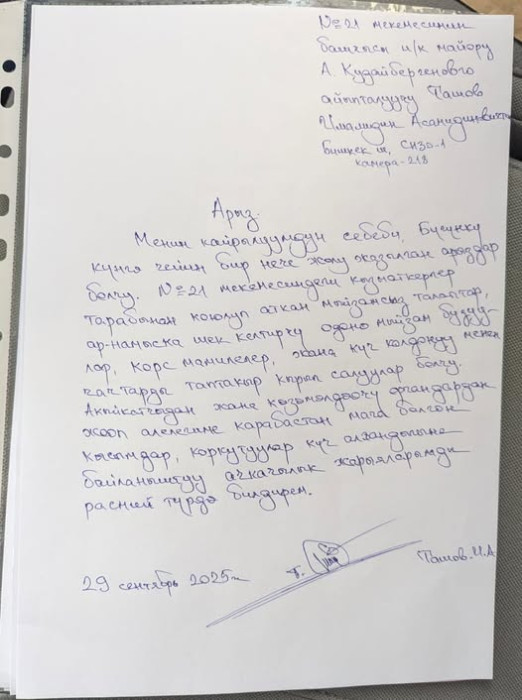 №21 мекемесинин
башчысы и/к майору
А. Кудайбергеновго
айыпталуучу Ташов
Асанидинович
Бишкек ш, СИЗО-1
камера-218
Арыз.
Менин кайрылуумдун себеби, Бүгүнкү
күнгө чейин бир нече жолу жазылган арыздар
болчу. №21 мекемесиндеги кызматкерлер
тарабынан коюлуп аткан мыйзамсыз талаптар,
ар-намыска шек келтирүү одоно мыйзам бузуу-
лар, корс мамилелер, жана күч колдонуу менен
чачтарды таптакыр кырып салуулар болчу.
Акыйкатчыдан жана көзөмөлдөөчү органдардан
жооп алсам карабастан мага болгон
кысымдар, коркутуулар күч алгандыгына
байланыштуу ачкачылык жарыяларымды
расмий түрдө билдирем.
29 сентябрь 2025-ж
Ташов.И.А